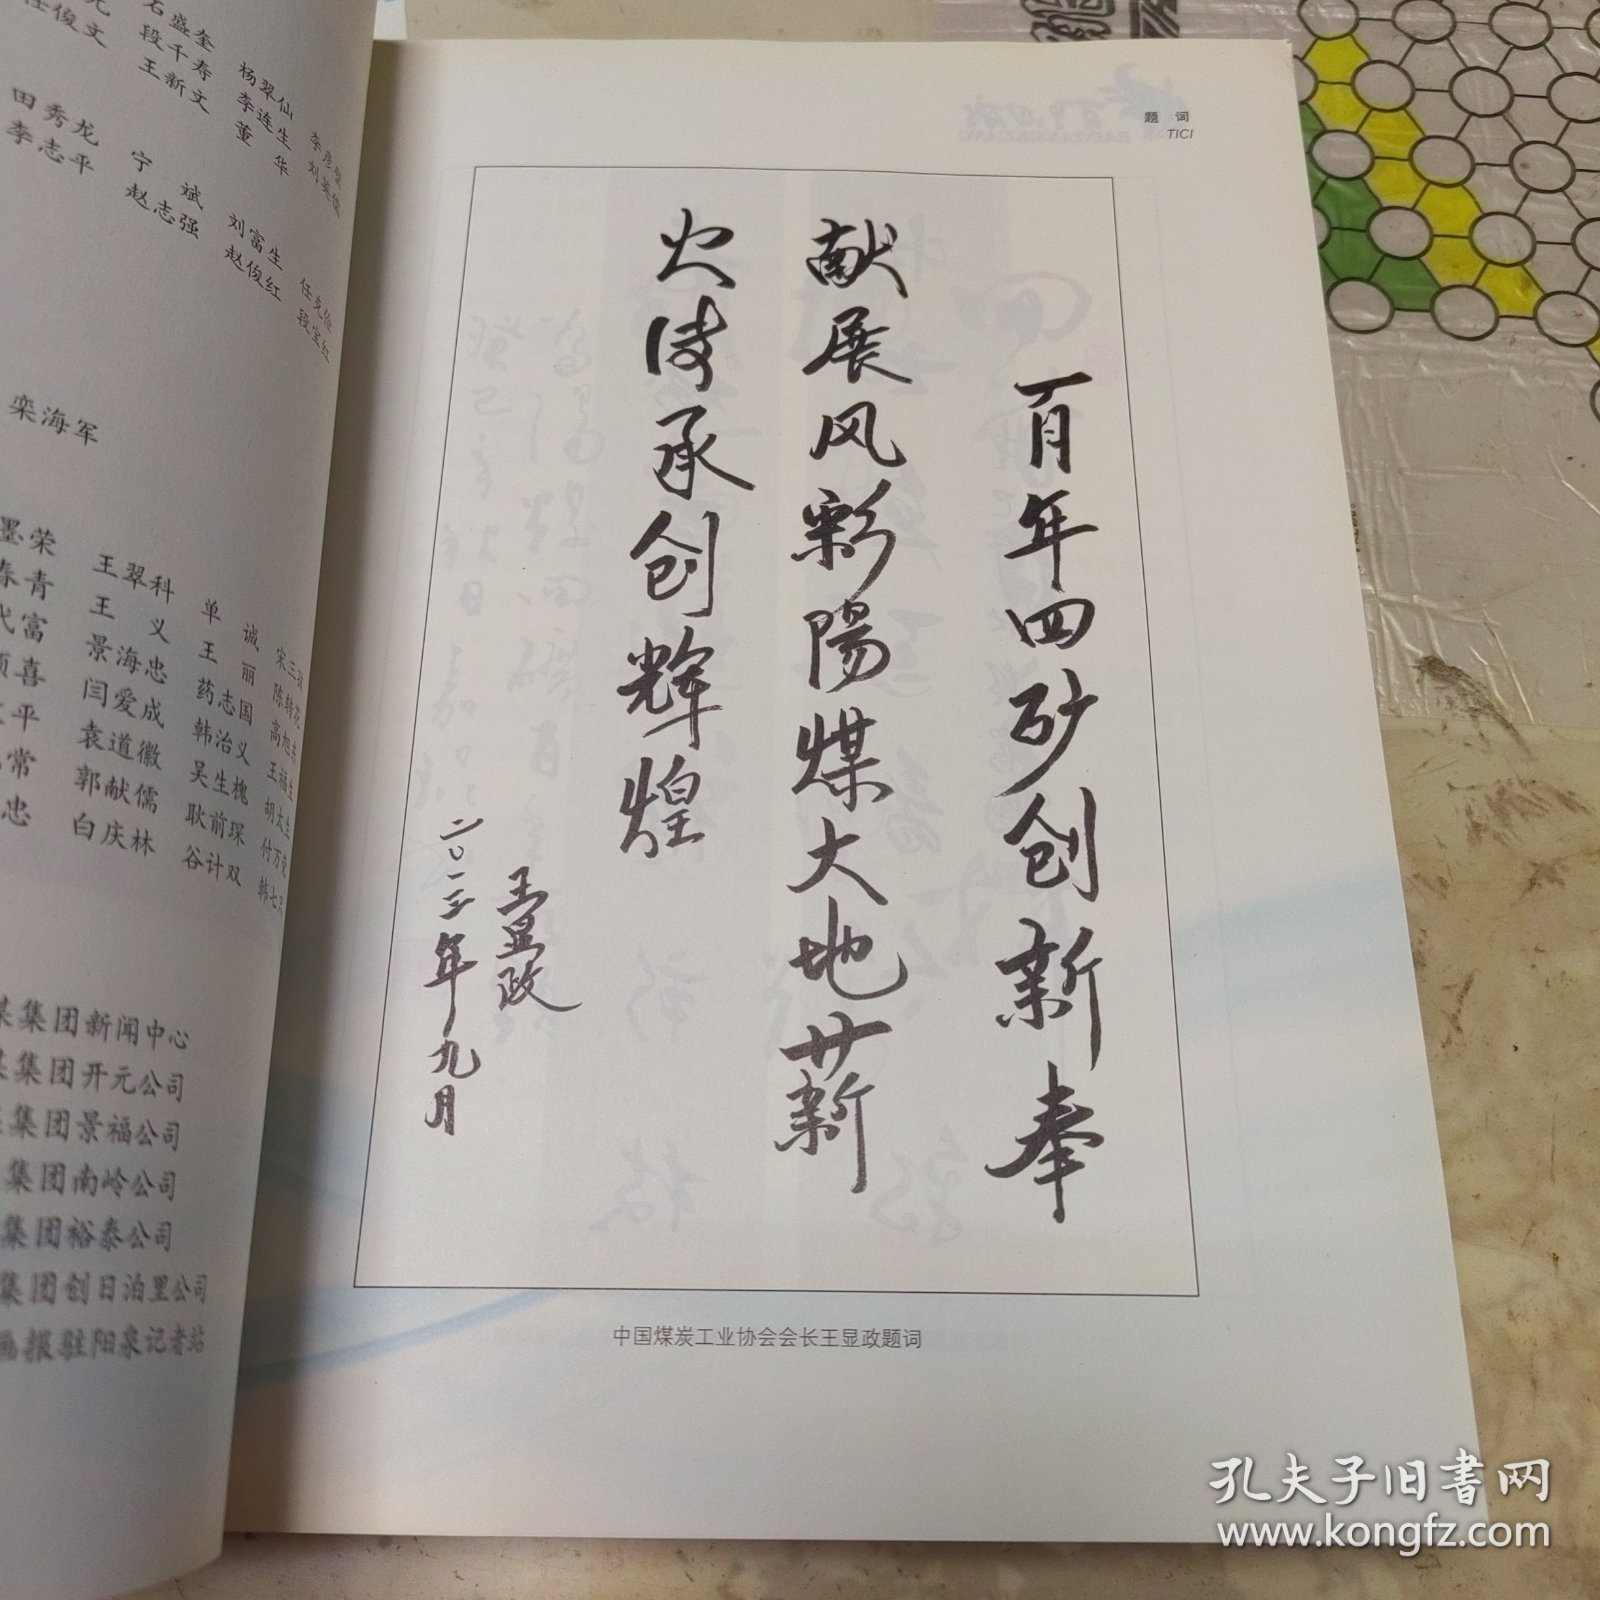 石盛奎 杨翠仙 李彦
任俊文 段千寿 李连生 刘英
王新文 董华
田秀龙 宁斌 刘富生
李志平 赵志强 赵俊红 段宝红
栾海军
墨荣 王翠科 单诚 宋三
春青 王义 王丽 陈转花
富 景海忠 药志国 高旭东
喜 闫爱成 韩治义 王福生
平 袁道徽 吴生槐 胡太生
常 郭献儒 耿前琛 付万
忠 白庆林 谷计双 韩七
煤集团新闻中心
集团开元公司
集团景福公司
集团南岭公司
集团裕泰公司
集团创日泊里公司
画报驻阳泉记者站
题词
TICI
百年四矿创新奉
献展风彩陽煤大地薪
火传承创辉煌
王显政
二〇一三年九月
中国煤炭工业协会会长王显政题词
孔夫子旧书网
www.kongfz.com